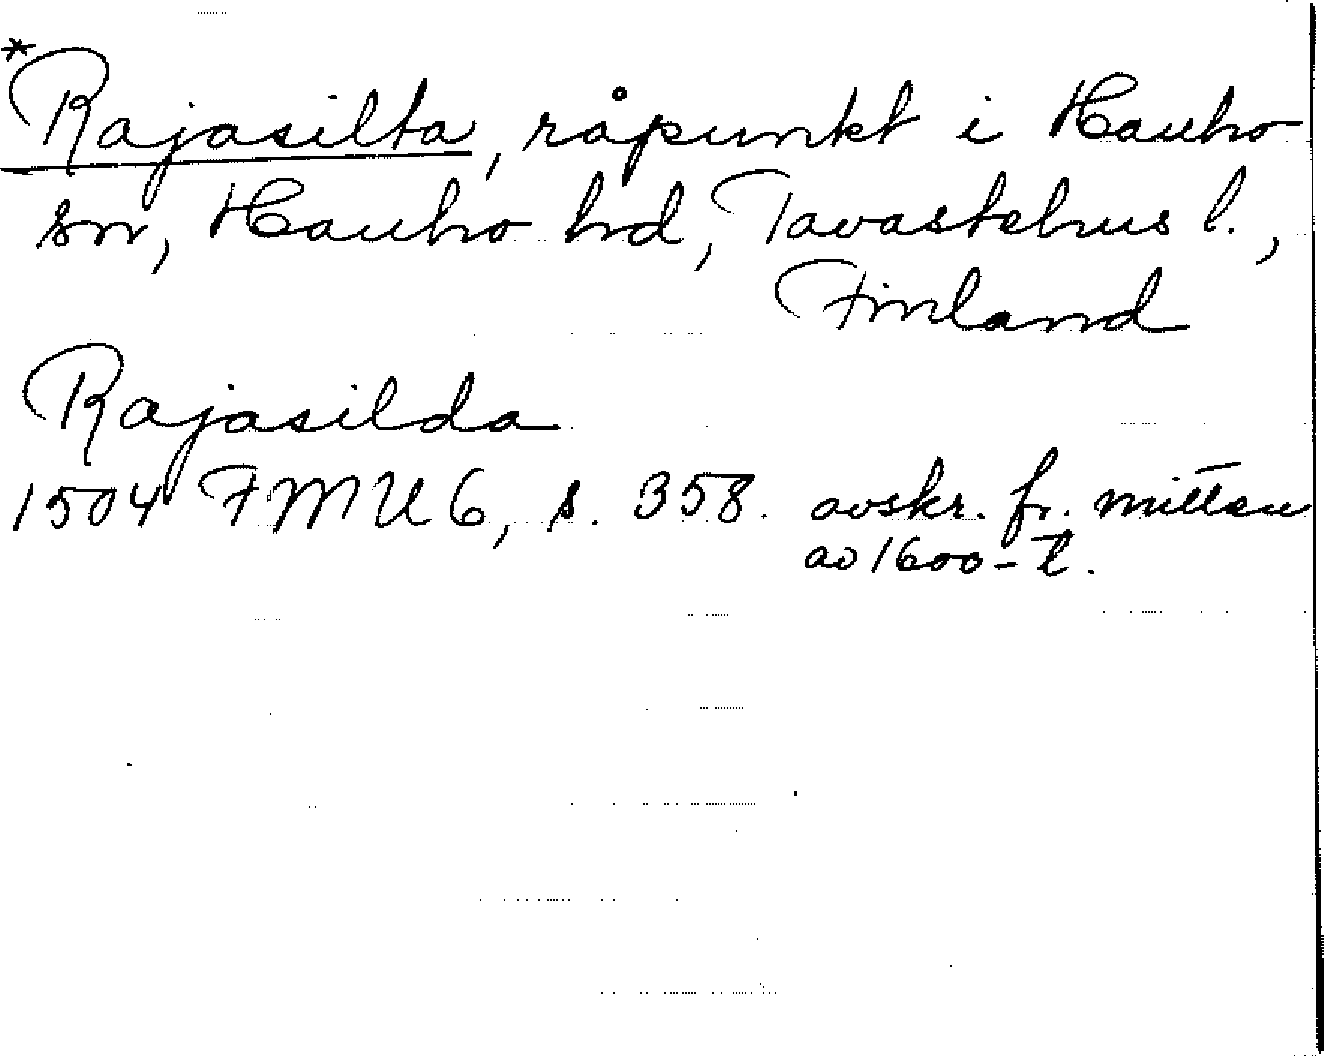 *
Rajasilta, råpunkt i Hauho
sn, Hauho hd, Tavastehus l.,
Finland
Rajasilda
1504 FMU 6, s. 358. avskr. fr. mitten
av 1600-t.